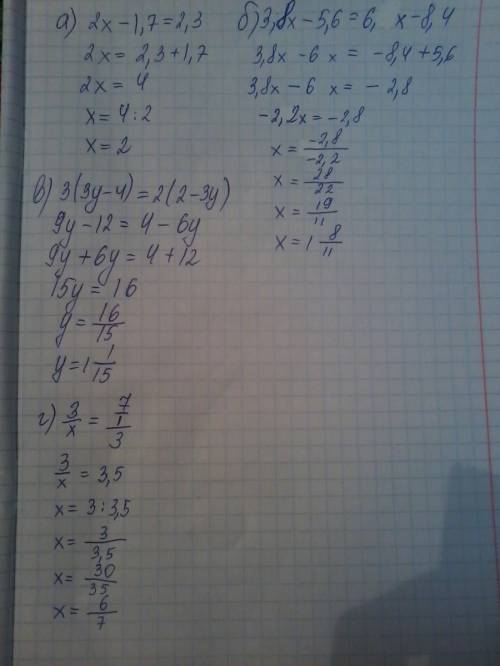 а) 2x-1,7=2,3
2x = 2,3+1,7
2x = 4
x = 4:2
x = 2
б) 3,8x-5,6=6, x-8,4
3,8x-6 x = -8,4+5,6
3,8x-6 x = -2,8
-2,2x=-2,8
x = -2,8/-2,2
x = 28/22
x = 19/11
x = 1 8/11
в) 3(3y-4)=2(2-3y)
9y-12=4-6y
9y+6y=4+12
15y=16
y = 16/15
y = 1 1/15
г) 3/x = 7/1/3
3/x = 3,5
x = 3:3,5
x = 3/3,5
x = 30/35
x = 6/7